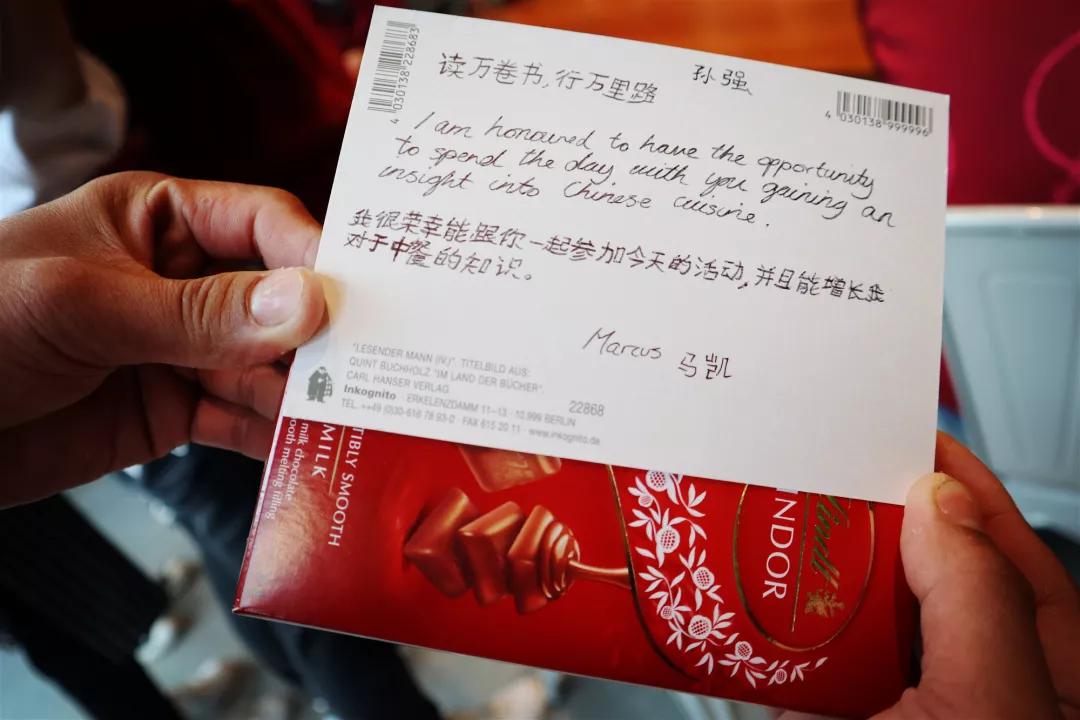 4 030138 228683
读万卷书,行万里路
孙强
4 030138 999996
I am honoured to have the opportunity
to spend the day with you gaining an
insight into Chinese cuisine.
我很荣幸能跟你一起参加今天的活动,并且能增长我
对于中餐的知识。
Marcus 马凯
"LESENDER MANN (IV.)". TITELBILD AUS:
QUINT BUCHHOLZ "IM LAND DER BÜCHER".
CARL HANSER VERLAG
Inkognito · ERKELENZDAMM 11–13 · 10.999 BERLIN
TEL. ++49 (0)30-616 78 93-0 · FAX 615 20 11 · www.inkognito.de
22868
TIBLY SMOOTH
MILK
milk chocolate
ooth melting filling
Lindt
INDOR